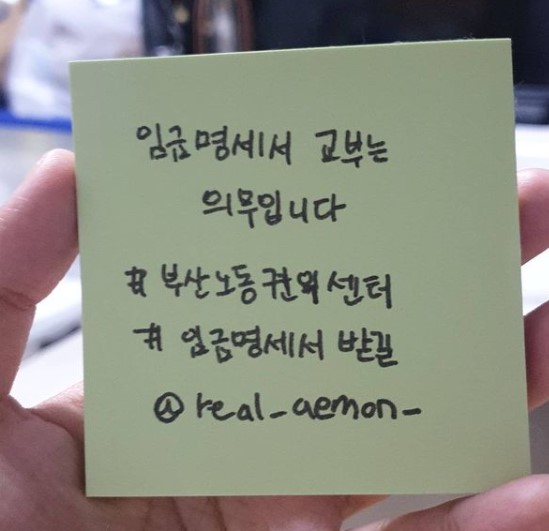 임금명세서 교부는
의무입니다
# 부산노동권익센터
# 임금명세서 받길
@real_aemon_